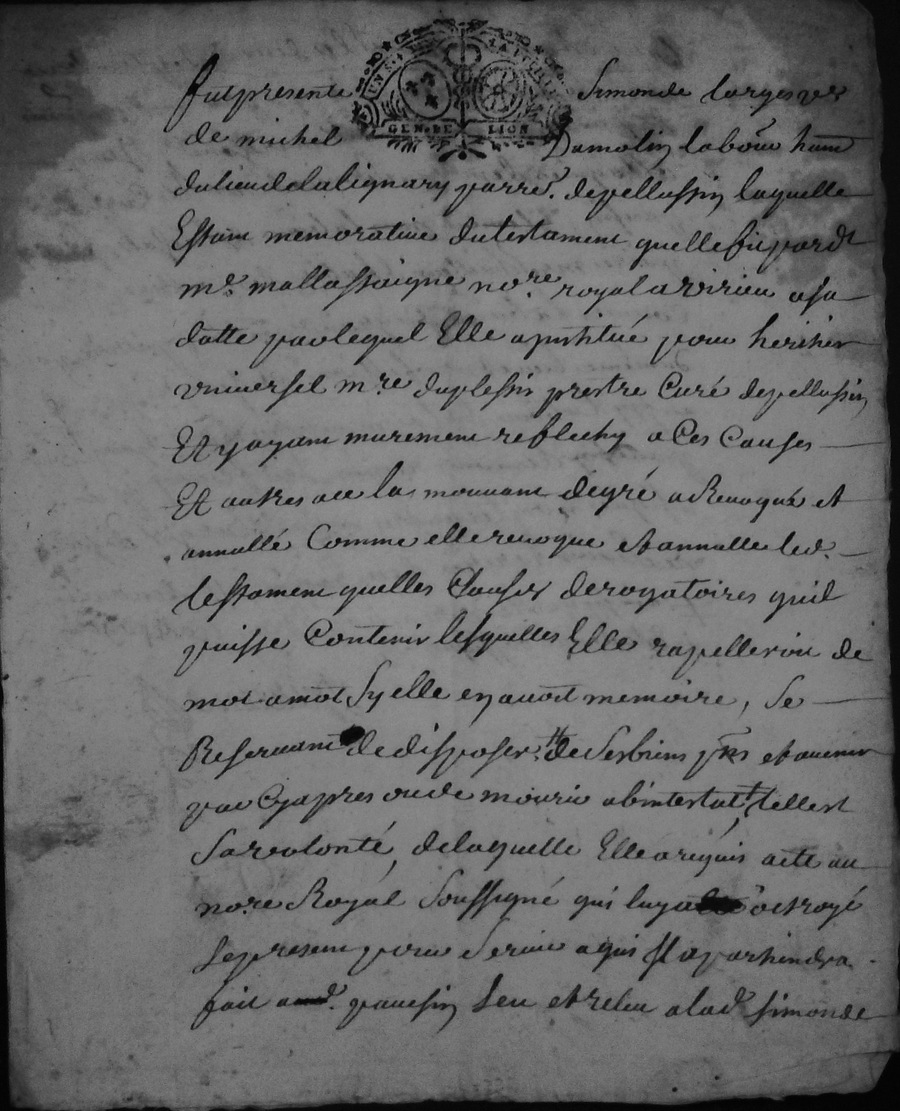 UN S. LA FEUILLE
GEN. DE LION
fut presente Simonde Larges vve
de michel Dumolin labour hant
du lieu de la lignary parre. de pellussin laquelle
Estant memorative du testament quelle fit pardt
me. mallassaigne nore. royal a virieu a sa
datte par lequel Elle a jnstitué pour heritier
universel mre duplessis prestre Curé de pellussin
Et y ayant murement reflechy a Ces Causes
Et autres a ce la mouvant de gré a Revoqué et
annullé Comme elle revoque et annulle led.
testament quelles Clauses derogatoires quil
puisse Contenir lesquelles Elle rapelleroit de
mot a mot Sy elle en avoit memoire, Se
Reservant de disposer de Ses biens pnts et avenir
par Cy apres ou de mourir abintestat, telle est
Sa volonté, de laquelle Elle a requis acte au
nore Royal Soussigné qui luy a octroyé
Le present pour Servir a qui Il apartiendra
fait aud. Leu et releu a lad. Simonde